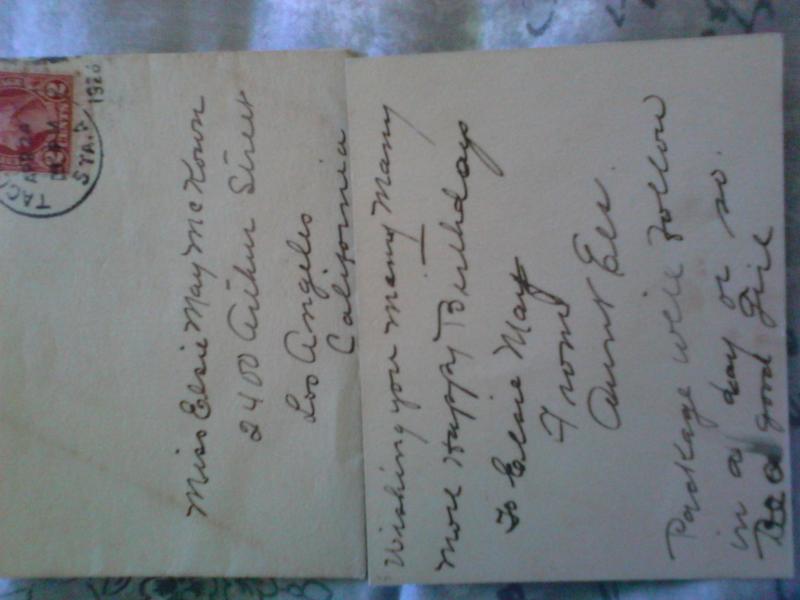 2 CENTS
TAC
APR 20
STA. A
1926
Miss Elsie May McKown
2400 Arthur Street
Los Angeles
California
Wishing you Many Many
More Happy Birthdays
To Elsie May
From
Aunt Els.
Package will follow
in a day or so.
Be a good girl